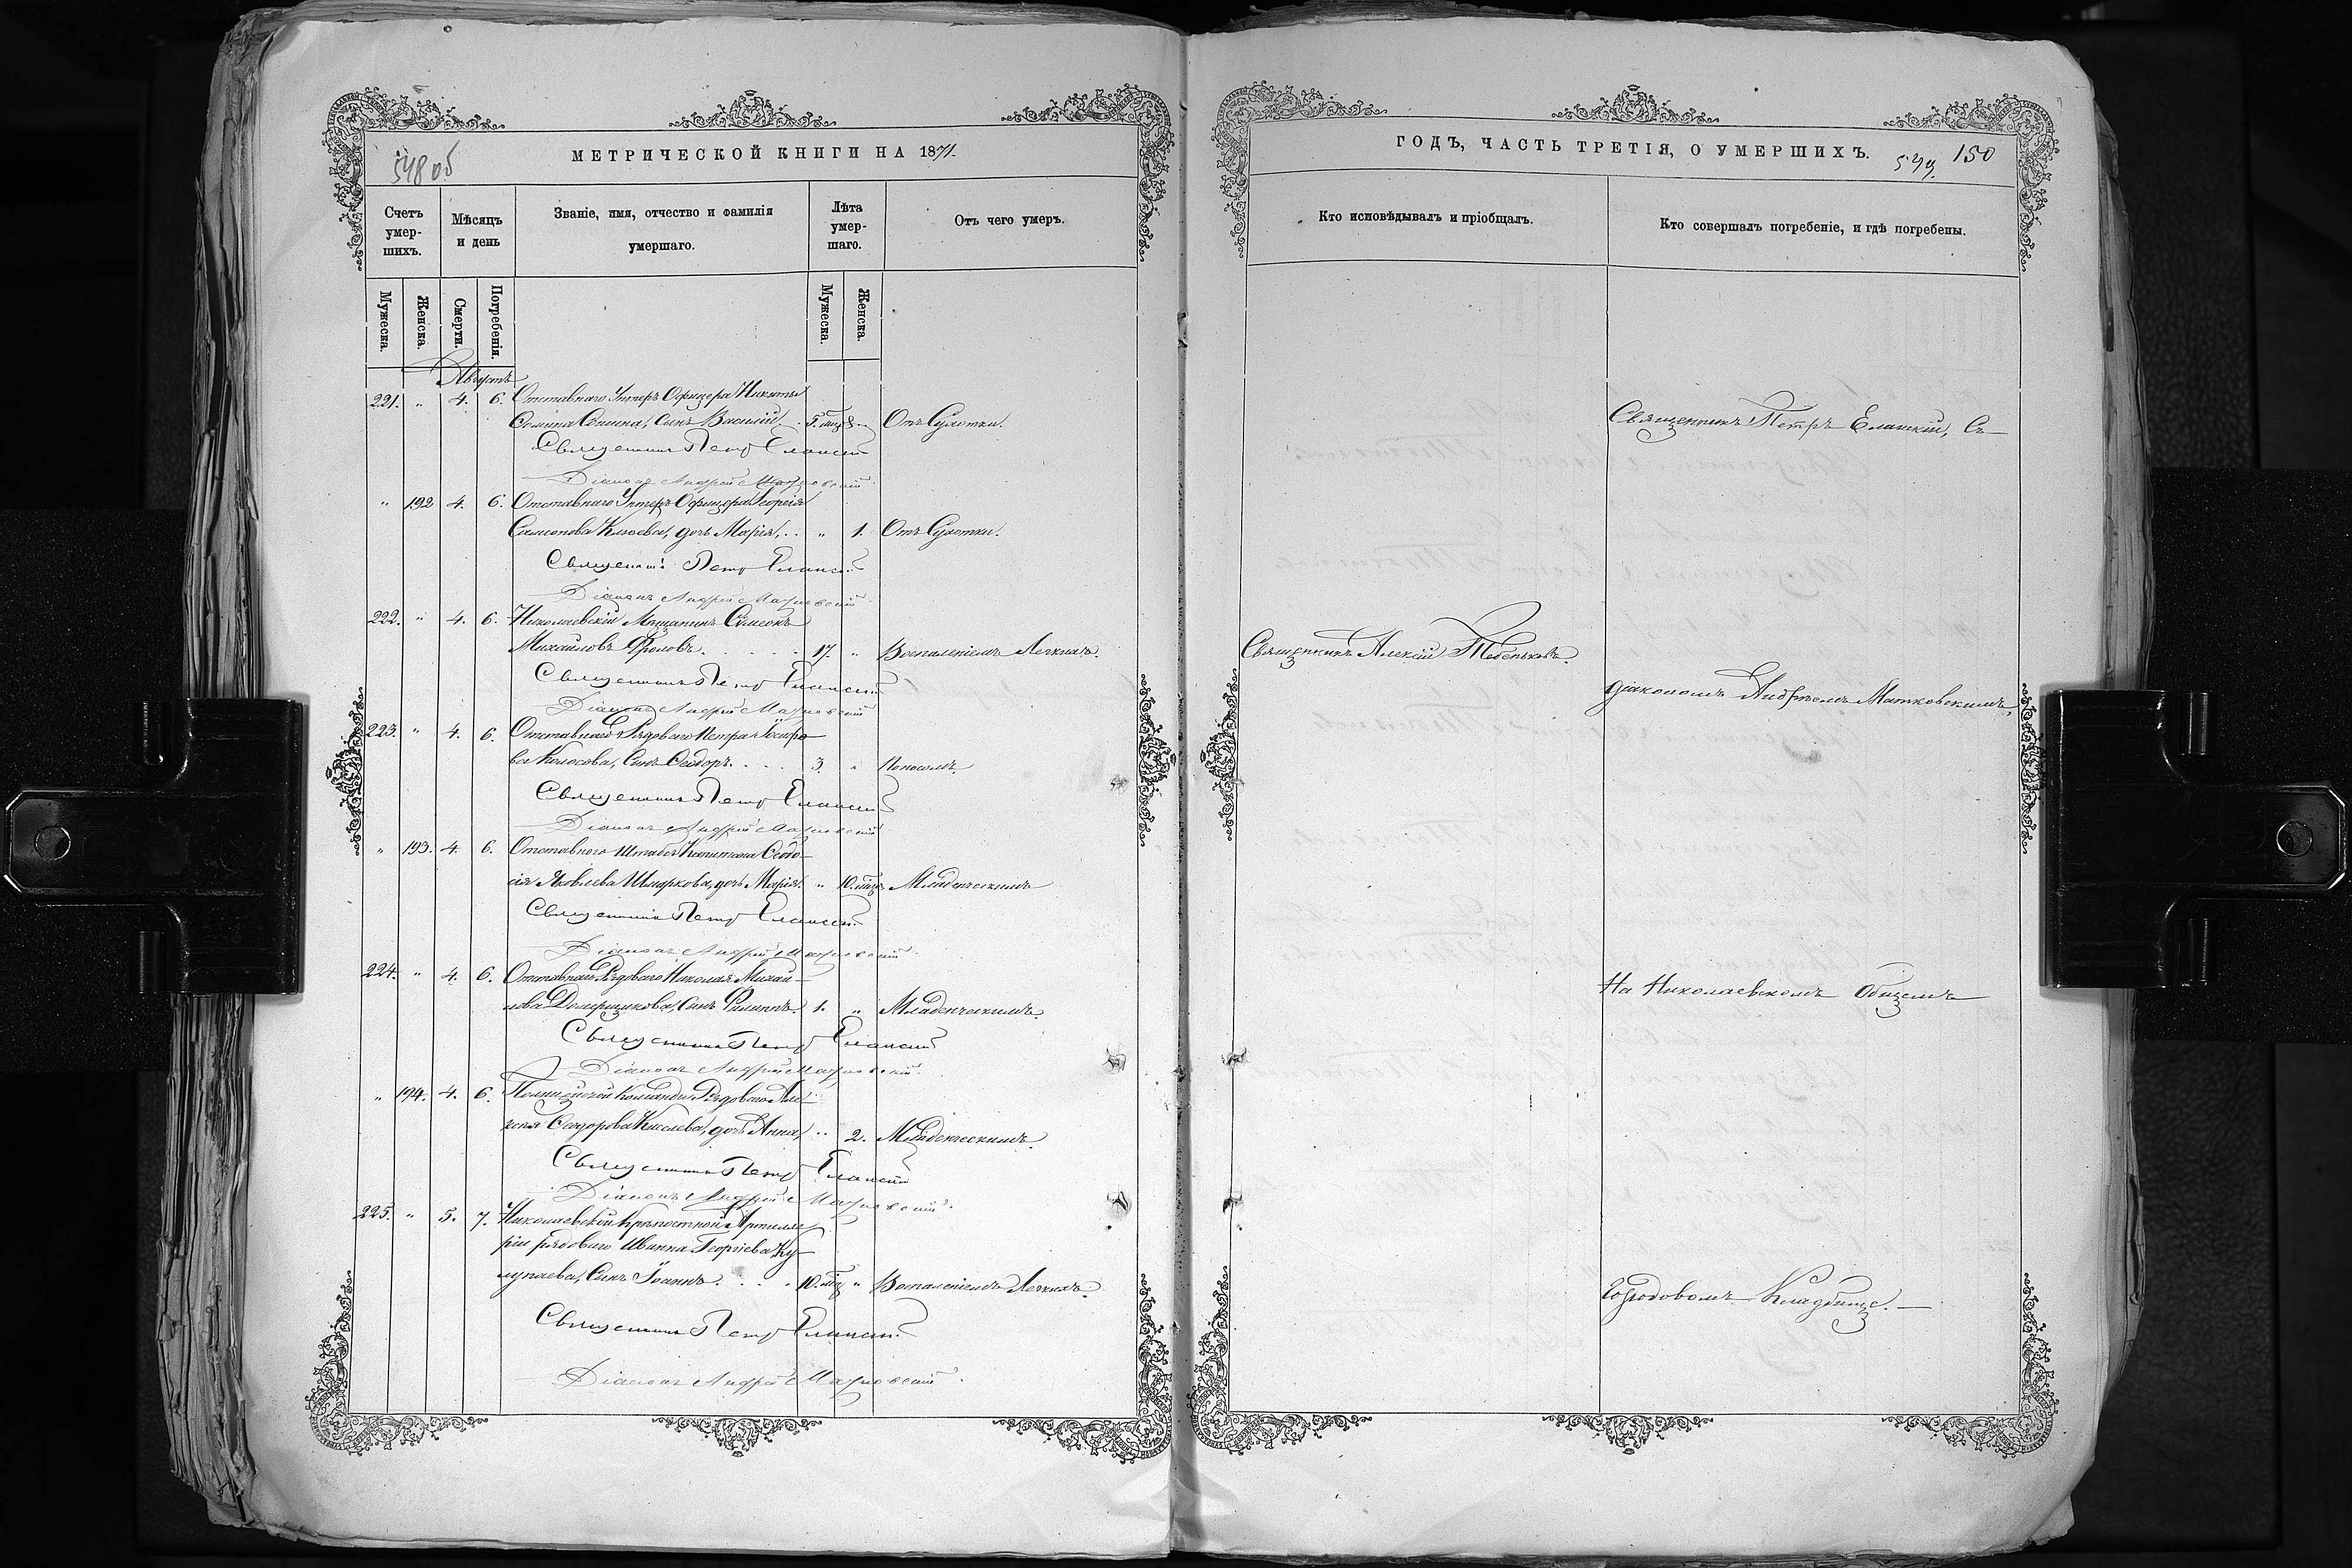 548 об
МЕТРИЧЕСКОЙ КНИГИ НА 1871.
Счетъ умер-шихъ.
Мѣсяцъ и день
Званіе, имя, отчество и фамилія умершаго.
Лѣта умер-шаго.
Отъ чего умеръ.
Мужеска.
Женска.
Смерти.
Погребенія.
Мужеска.
Женска.
Августъ
221. " 4. 6. Отставнаго Унтеръ Офицера Никиты
Сомина, Сынъ Василій. 5. мцв. Отъ Сухотки.
Священникъ Петръ Еланскій
Діаконъ Андрей Матковскій
" 192 4. 6. Отставнаго Унтеръ Офицера Георгія
Самсонова Клюева, дочь Марія, .. " 1. Отъ Сухотки.
Священникъ Петръ Еланскій
Діаконъ Андрей Матковскій
222. " 4. 6. Николаевскій Мѣщанинъ Сѵмеонъ
Михайловъ Фроловъ. . . . . . 17. " Воспаленіемъ Легкихъ.
Священникъ Петръ Еланскій
Діаконъ Андрей Матковскій
223. " 4. 6. Отставнаго Рядоваго Петра
ва Колосова, Сынъ Ѳеодоръ. . . . 3. " Поносомъ.
Священникъ Петръ Еланскій
Діаконъ Андрей Матковскій
" 193. 4. 6. Отставнаго Штабсъ Капитана Ѳеодо-
сія Яковлева Шмаркова, дочь Марія. " 10. мцв Младенческимъ
Священникъ Петръ Еланскій
Діаконъ Андрей Матковскій
224. " 4. 6. Отставнаго Рядоваго Николая Михай-
лова Домерщикова, Сынъ Филиппъ. 1. " Младенческимъ.
Священникъ Петръ Еланскій
Діаконъ Андрей Матковскій
" 194. 4. 6. Полицейской Команды Рядоваго Але-
ксѣя Ѳеодорова Киселева, дочь Анна, .. 2. Младенческимъ.
Священникъ Петръ Еланскій
Діаконъ Андрей Матковскій
225. " 5. 7. Николаевской Крѣпостной Артилле-
ріи рядоваго Ивана Георгіева Ку-
лупаева, Сынъ Іоаннъ. . . . 10. мцв " Воспаленіемъ Легкихъ.
Священникъ Петръ Еланскій
Діаконъ Андрей Матковскій
ГОДЪ, ЧАСТЬ ТРЕТІЯ, О УМЕРШИХЪ.
549. 150
Кто исповѣдывалъ и пріобщалъ.
Кто совершалъ погребеніе, и гдѣ погребены.
Священникъ Петръ Еланскій, Съ
Священникъ Алексій Тебеньковъ.
діакономъ Андреемъ Матковскимъ,
На Николаевскомъ Общемъ
Городовомъ Кладбище.